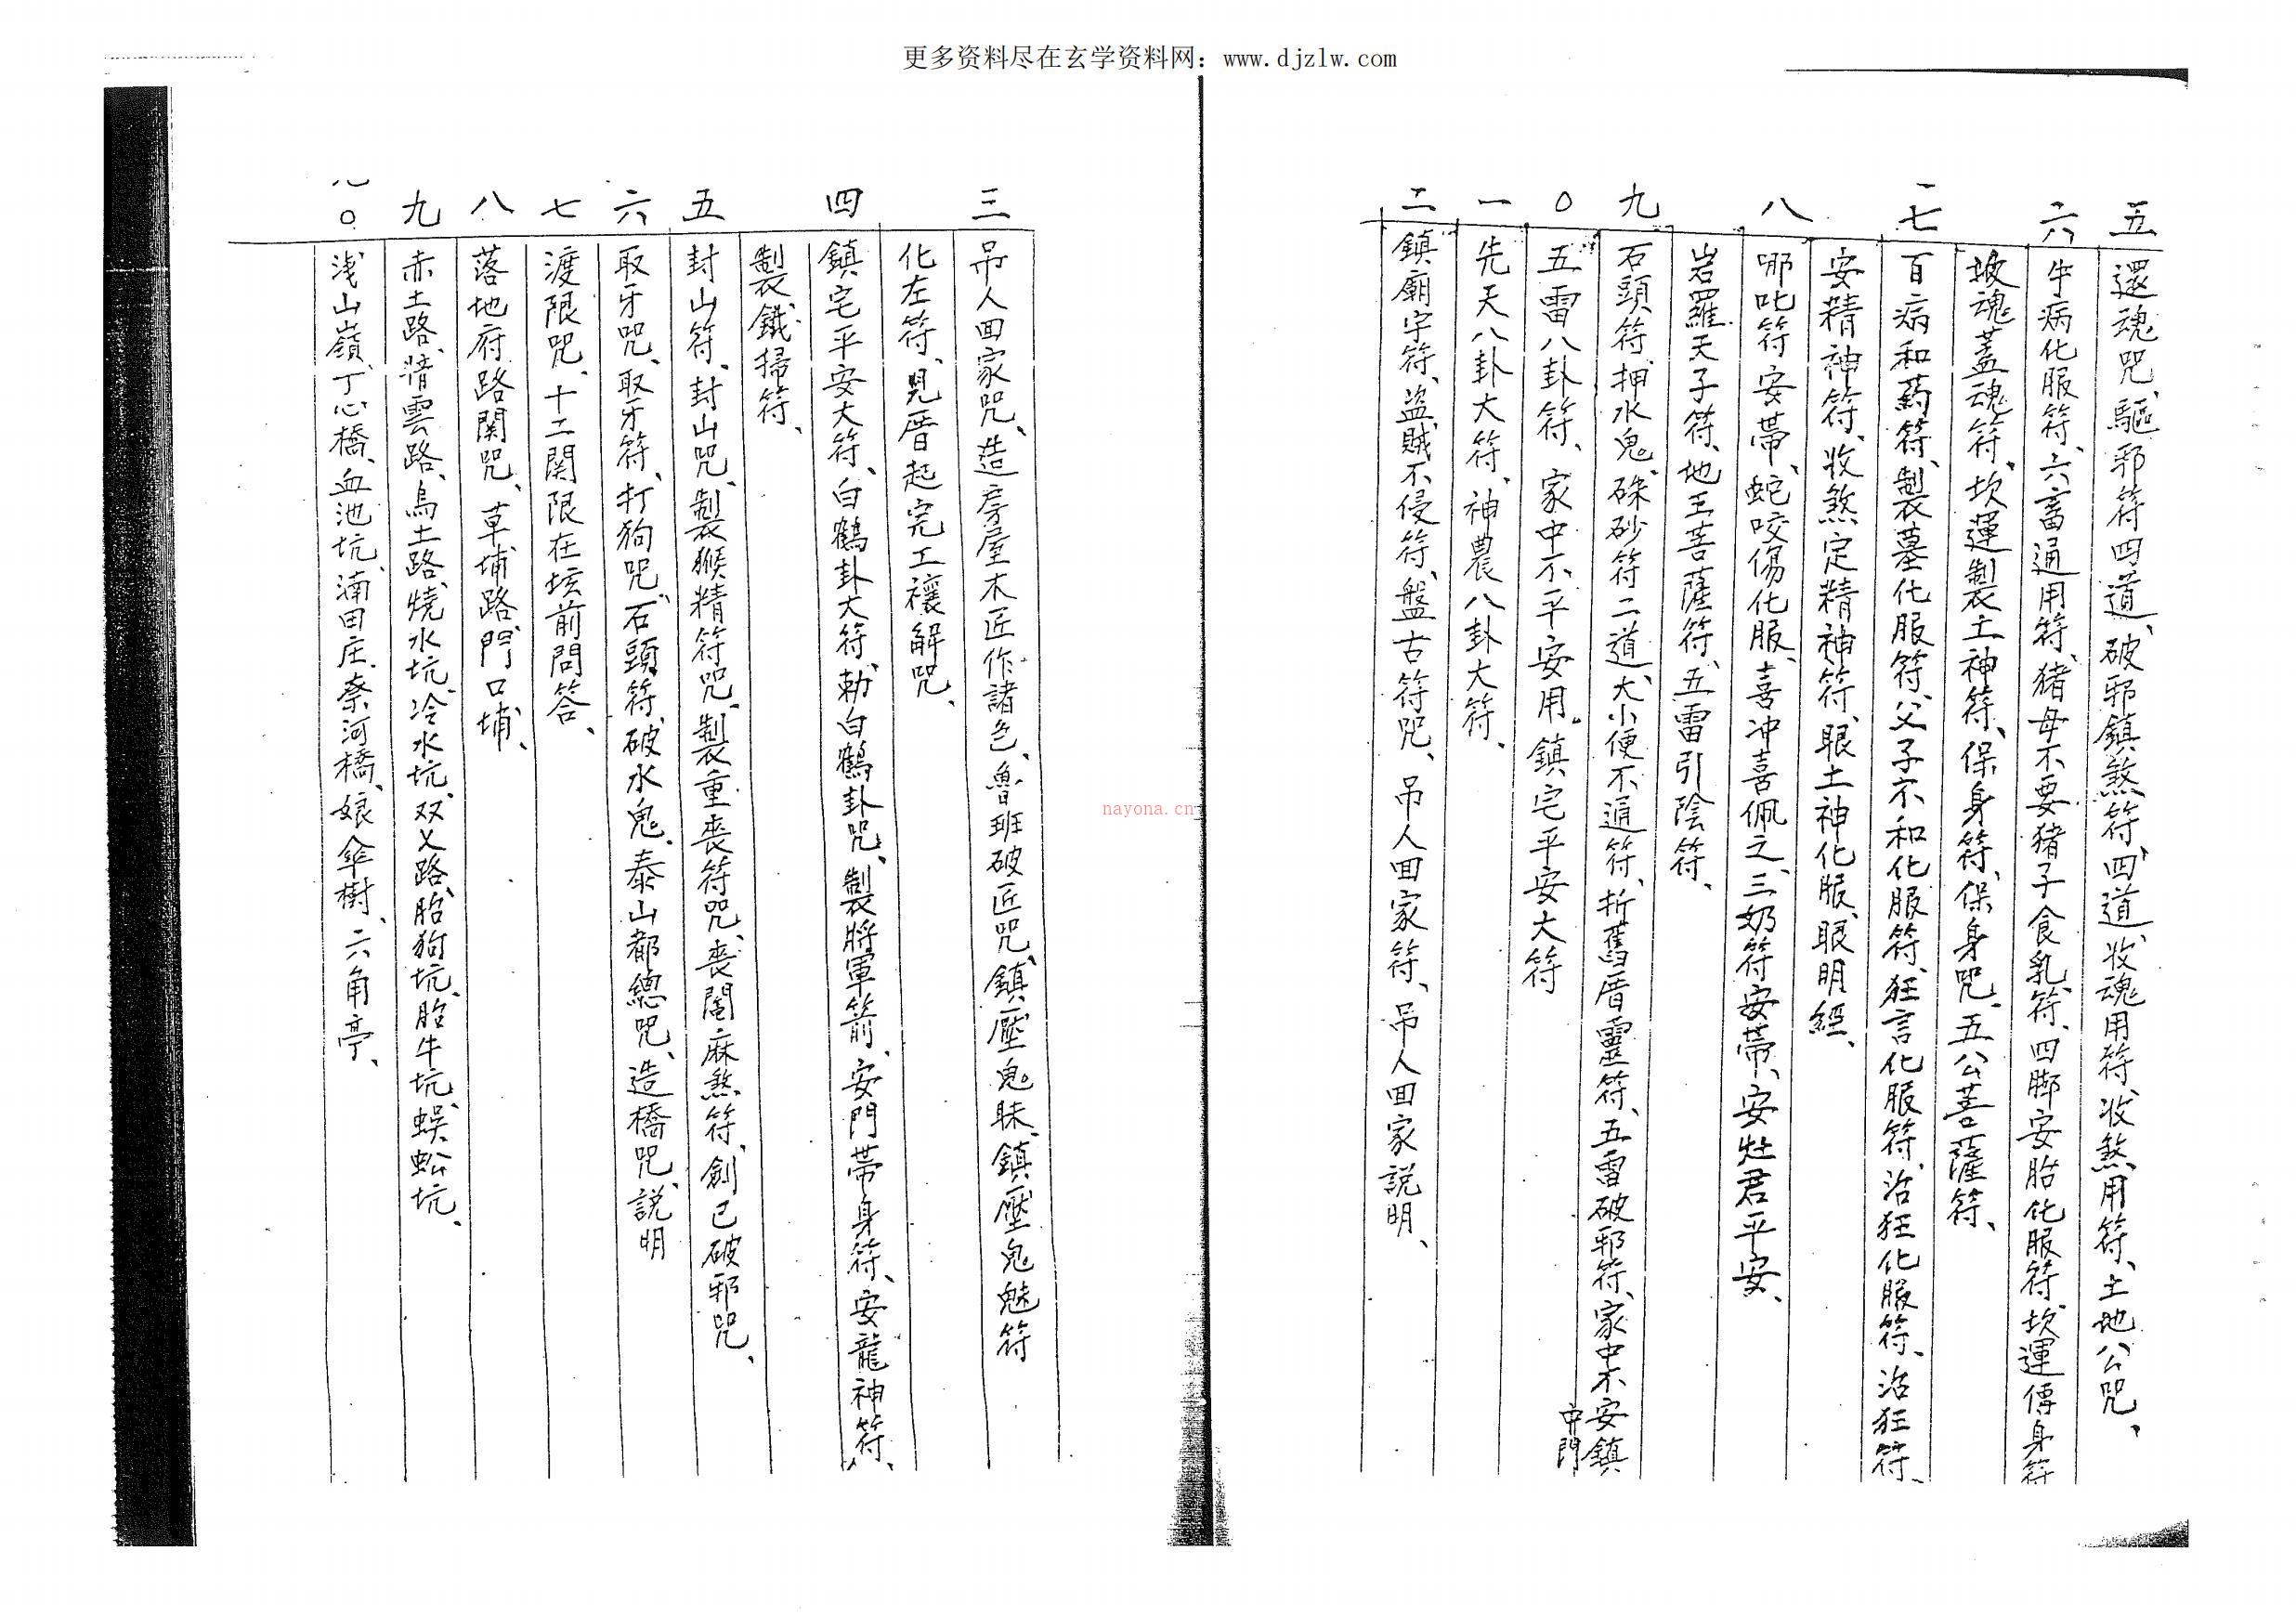 更多资料尽在玄学资料网：www.djzlw.com
五 還魂咒、驅邪符四道、破邪鎮煞符四道、收魂用符、收煞用符、土地公咒、
六 牛病化服符、六畜通用符、猪母不要猪子食乳符、四脚安胎化服符、坎運傳身符
蓋魂符、坎運製土神符、保身符、保身咒、五公菩薩符、
二七 百病和葯符、製墓化服符、父子不和化服符、狂言化服符、治狂化服符、治狂符、
安精神符、收煞定精神符、眼土神化服、眼明經、
八 哪叱符安帯、蛇咬傷化服、喜冲喜佩之、三奶符安帯、安灶君平安、
岩羅天子符、地王菩薩符、五雷引陰符、
九 石頭符、押水鬼、硃砂符二道、大小便不通符、折舊厝靈符、五雷破邪符、家中不安鎮中門
〇 五雷八卦符、家中不平安用。鎮宅平安大符
一 先天八卦大符、神農八卦大符、
二 鎮廟宇符、盗賊不侵符、盤古符咒、吊人回家符、吊人回家説明、
三 吊人回家咒、造房屋木匠作諸色、魯班破匠咒、鎮壓鬼昧、鎮壓鬼魅符
化左符、見厝起完工禳解咒、
四 鎮宅平安大符、白鶴卦大符、勅白鶴卦咒、製將軍箭、安門帯身符、安龍神符、
製鐵掃符、
五 封山符、封山咒、製猴精符咒、製重喪符咒、喪閣麻煞符、創已破邪咒、
六 取牙咒、取牙符、打狗咒、石頭符、破水鬼、泰山都總咒、造橋咒、説明
七 渡限咒、十二関限在垓前問答、
八 落地府路関咒、草埔路、門口埔、
九 赤土路、清雲路、烏土路、燒水坑、冷水坑、双乂路、胎狗坑、胎牛坑、蜈蚣坑、
〇 浅山嶺、丁心橋、血池坑、湳田庄、奈河橋、娘傘樹、六角亭、
nayona.cn